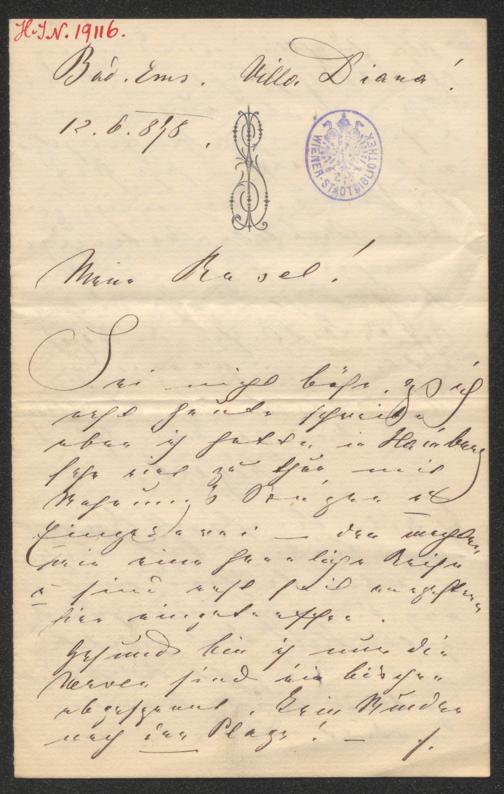 H.I.N. 19116.
Bad. Ems. Villa Diana!
12.6.878.
WIENER-STADTBIBLIOTHEK
Meine Rosel!
Sei nicht böse, daß ich
erst heute schreibe
aber ich hatte in Hamburg
sehr viel zu thun mit
Wohnungs Sorgen &
– dan machten
wir eine herrliche Reise
& sind erst seit vorgestern
hier eingetroffen.
Gesund bin ich nur die
Nerven sind ein bischen
abgespannt. Kein Wunder
nach der Plage! –